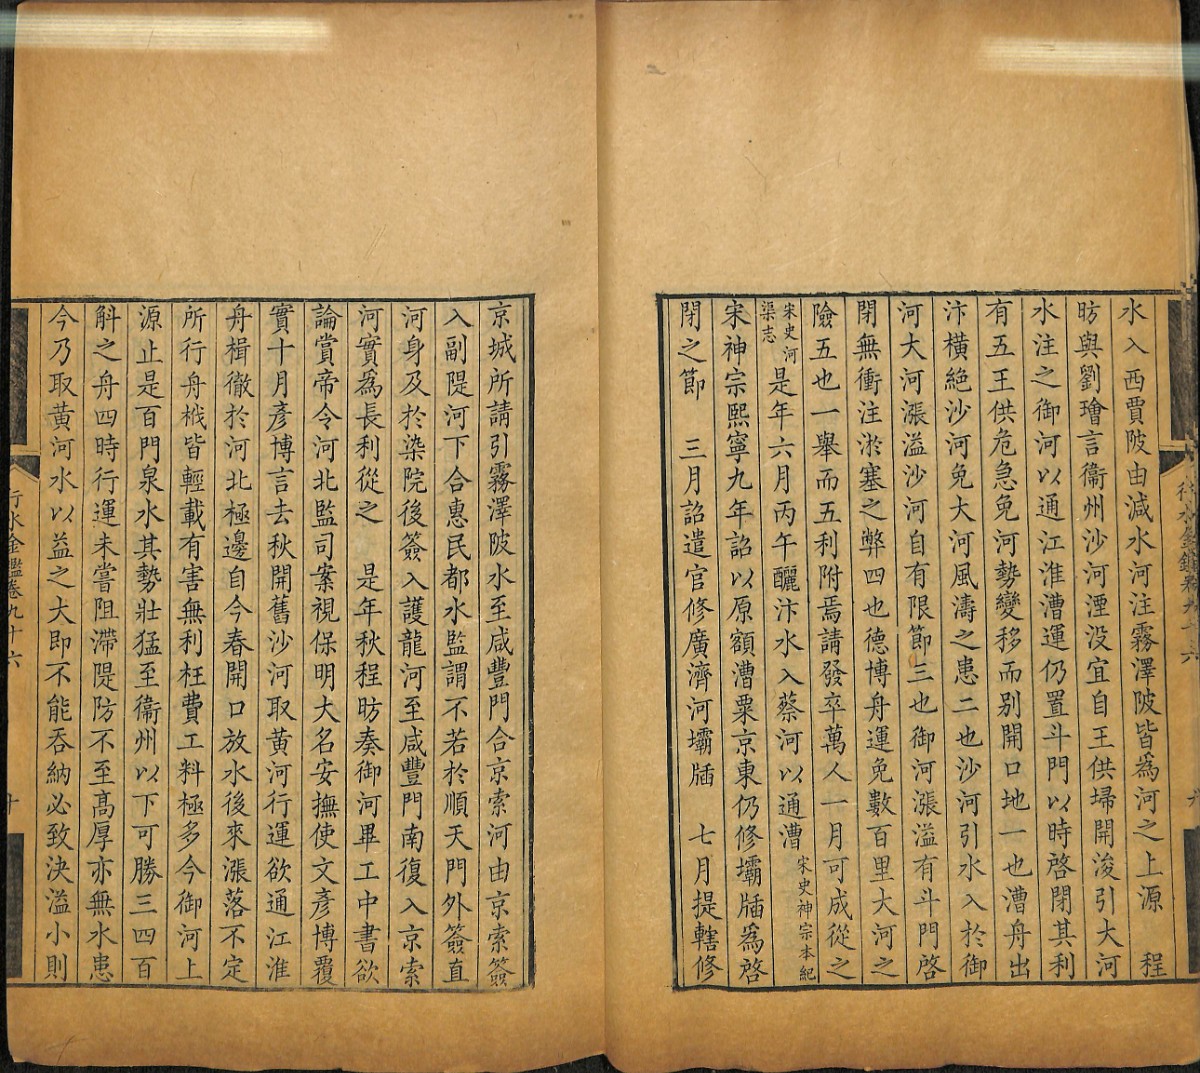 水入西賈陂由減水河注霧澤陂皆為河之上源　程
昉與劉璯言衞州沙河湮没宜自王供埽開浚引大河
水注之御河以通江淮漕運仍置斗門以時啓閉其利
有五王供危急免河勢變移而别開口地一也漕舟出
汴横絶沙河免大河風濤之患二也沙河引水入於御
河大河漲溢沙河自有限節三也御河漲溢有斗門啓
閉無衝注淤塞之弊四也德博舟運免數百里大河之
險五也一舉而五利附焉請發卒萬人一月可成從之
宋史河渠志　是年六月丙午釃汴水入蔡河以通漕　宋史神宗本紀
宋神宗熙寧九年詔以原額漕粟京東仍修壩牐為啓
閉之節　三月詔遣官修廣濟河壩牐　七月提轄修
京城所請引霧澤陂水至咸豐門合京索河由京索簽
入副隄河下合惠民都水監謂不若於順天門外簽直
河身及於染院後簽入護龍河至咸豐門南復入京索
河實為長利從之　是年秋程昉奏御河畢工中書欲
論賞帝令河北監司案視保明大名安撫使文彥博覆
實十月彥博言去秋開舊沙河取黄河行運欲通江淮
舟楫徹於河北極邊自今春開口放水後來漲落不定
所行舟栰皆輕載有害無利枉費工料極多今御河上
源止是百門泉水其勢壯猛至衞州以下可勝三四百
斛之舟四時行運未嘗阻滯隄防不至高厚亦無水患
今乃取黄河水以益之大即不能吞納必致決溢小則
行水金鑑卷九十六　十